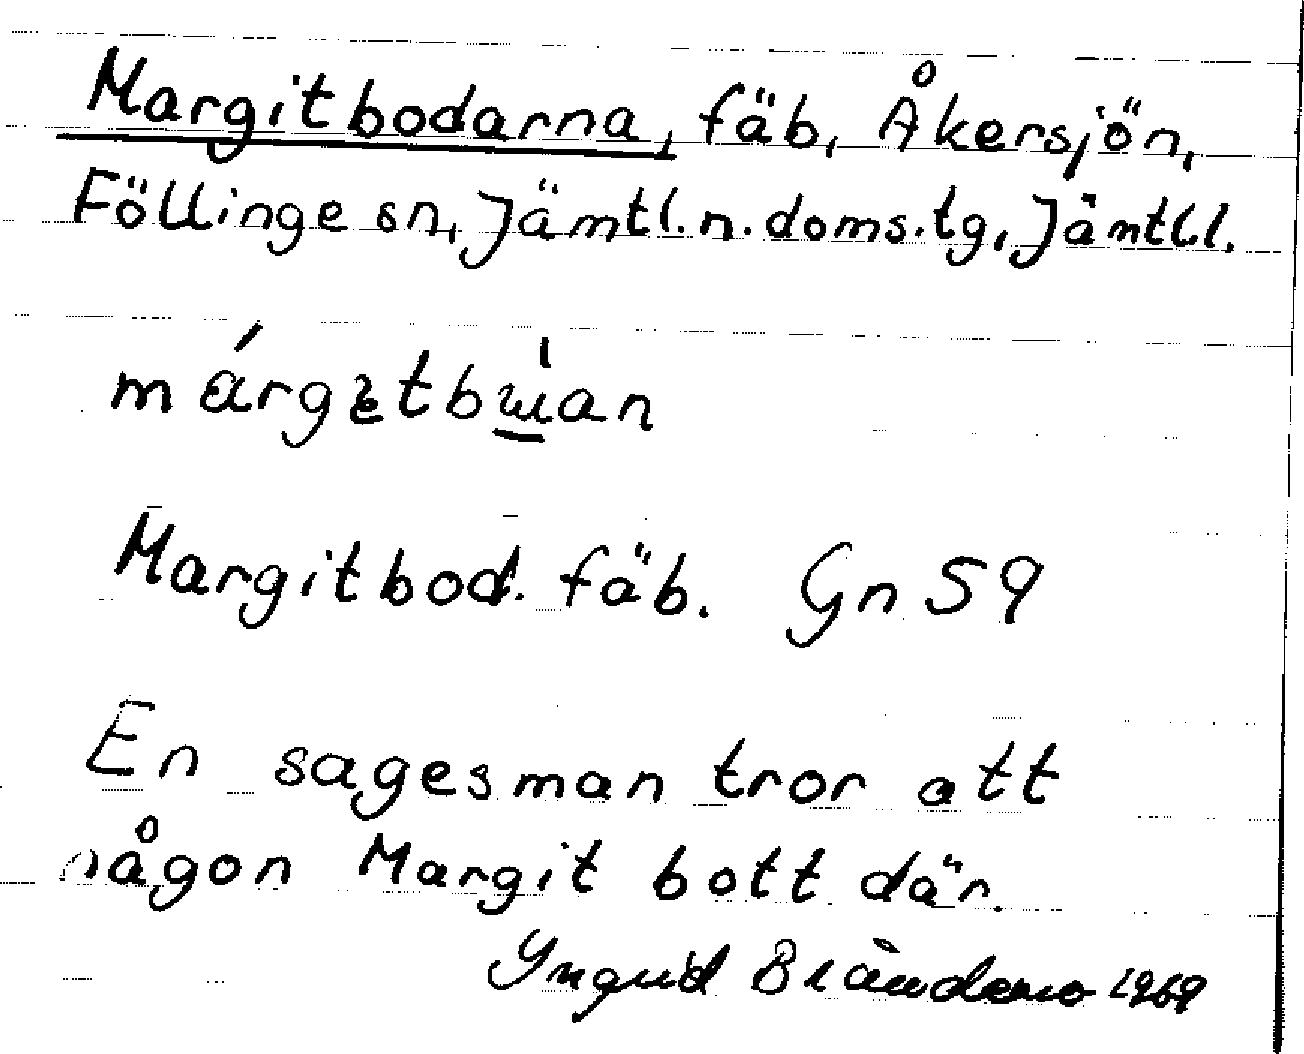 Margitbodarna, fäb, Åkersjön,
Föllinge sn, Jämtl. n. doms. tg, Jämtl l.
Margitbod. fäb. Gn 59
En sagesman tror att
någon Margit bott där.
Brändemo 1969